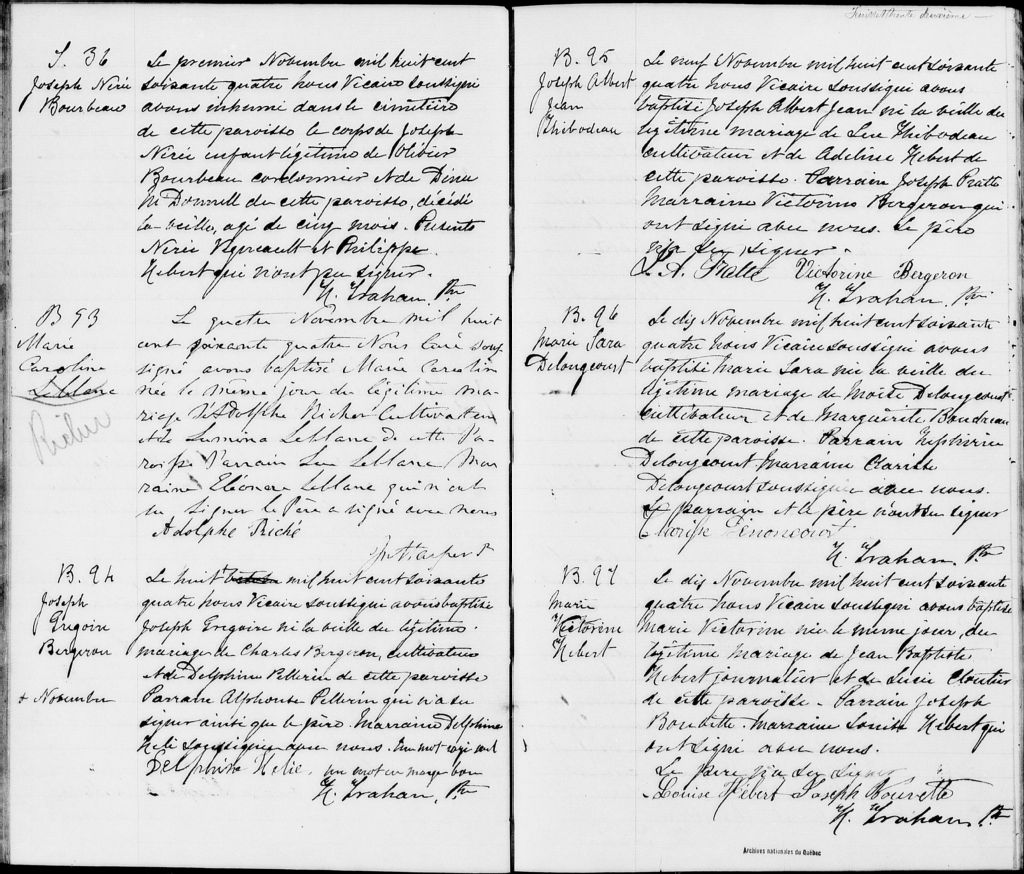 S. 36
Joseph Nérée
Bourbeau
Le premier Novembre mil huit cent
soixante quatre nous Vicaire soussigné
avons inhumé dans le cimetière
de cette paroisse le corps de Joseph
Nérée enfant légitime de Olivier
Bourbeau cordonnier et de Dina
Mc Donnell de cette paroisse, décédé
la veille, agé de cinq mois. Présents
Nérée et Philippe
Hebert qui n'ont pu signer.
H. Trahan, Ptre
B 93
Marie
Caroline
Leblanc
Richer
Le quatre Novembre mil huit
cent soixante quatre Nous Curé sous
signé avons baptisé Marie Carolin
née le même jour du légitime ma-
riage d'Adolphe Richer Cultivateur
et de Lumina Leblanc de cette Pa-
roisse Parrain Luc Leblanc Mar
raine Eléonore Leblanc qui n'ont
su signer le Père a signé avec nous
Adolphe Riché
B. 94
Joseph
Grégoire
Bergeron
+ Novembre
Le huit + mil huit cent soixante
quatre nous Vicaire soussigné avons baptisé
Joseph Grégoire né la veille du légitime
mariage de Charles Bergeron, cultivateur
et de Delphine Pellerin de cette paroisse
Parrain Alphonse Pellerin qui n'a su
signer ainsi que le père. Marraine Delphine
Helie soussignée avec nous. Un mot rayé nul
Delphine Helie. un mot en marge bon
H. Trahan, Ptre
Feuillet trente deuxième —
B. 95
Joseph Albert
Jean
Thibodeau
Le neuf Novembre mil huit cent soixante
quatre nous Vicaire soussigné avons
baptisé Joseph Albert Jean né la veille du
légitime mariage de Luc Thibodeau
cultivateur et de Adeline Hebert de
cette paroisse. Parrain Joseph Pratte
Marraine Victorine Bergeron qui
ont signé avec nous. Le père
n'a su signer.
J. A. Pratte Victorine Bergeron
H. Trahan, Ptre
B. 96
Marie Sara
Delongcourt
Le dix Novembre mil huit cent soixante
quatre nous Vicaire soussigné avons
baptisé Marie Sara née la veille du
légitime mariage de Moïse Delongcourt
cultivateur et de Marguerite Boudreau
de cette paroisse. Parrain Zéphirin
Delongcourt Marraine Clarisse
Delongcourt soussignée avec nous.
Le parrain et le père n'ont su signer
H. Trahan, Ptre
B. 97
Marie
Victorine
Hebert
Le dix Novembre mil huit cent soixante
quatre nous Vicaire soussigné avons baptisé
Marie Victorine née le même jour, du
légitime mariage de Jean Baptiste
Hebert journalier et de Lucie Cloutier
de cette paroisse. Parrain Joseph
Marraine Louise Hebert qui
ont signé avec nous.
Le père n'a su signer
Louise Hébert Joseph
H. Trahan, Ptre
Archives nationales du Québec